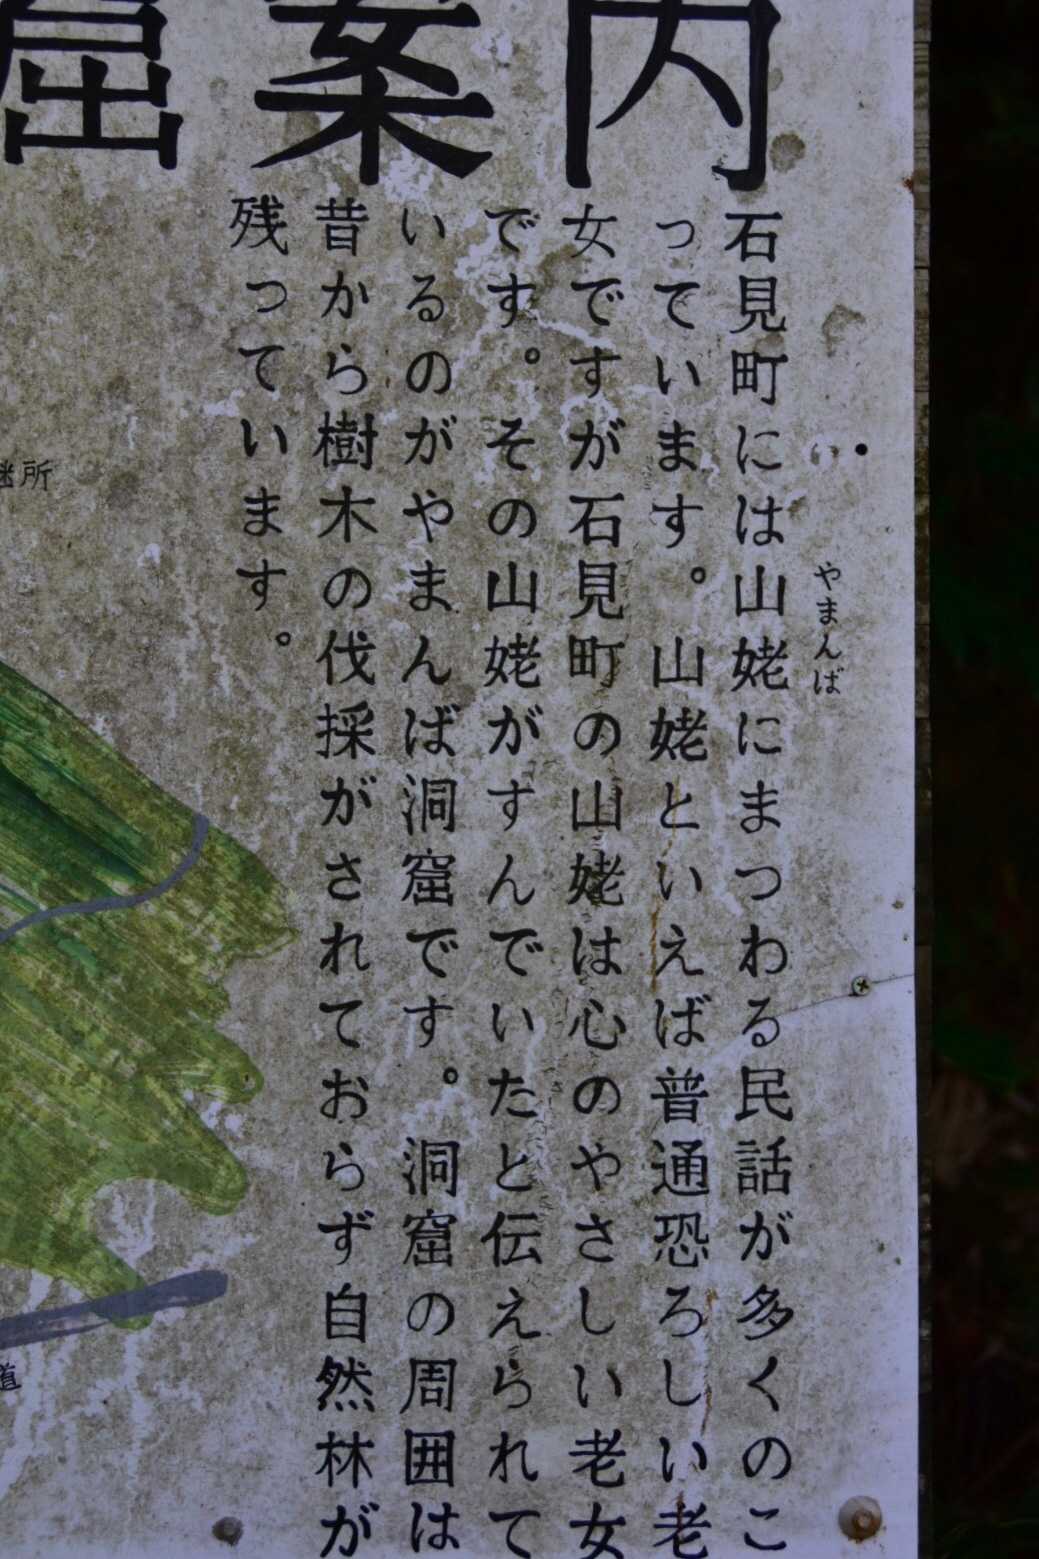 窟案内
やまんば
石見町には山姥にまつわる民話が多くのこ
っています。山姥といえば普通恐ろしい老
女ですが石見町の山姥は心のやさしい老女
です。その山姥がすんでいたと伝えられて
いるのがやまんば洞窟です。洞窟の周囲は
昔から樹木の伐採がされておらず自然林が
残っています。
所
道